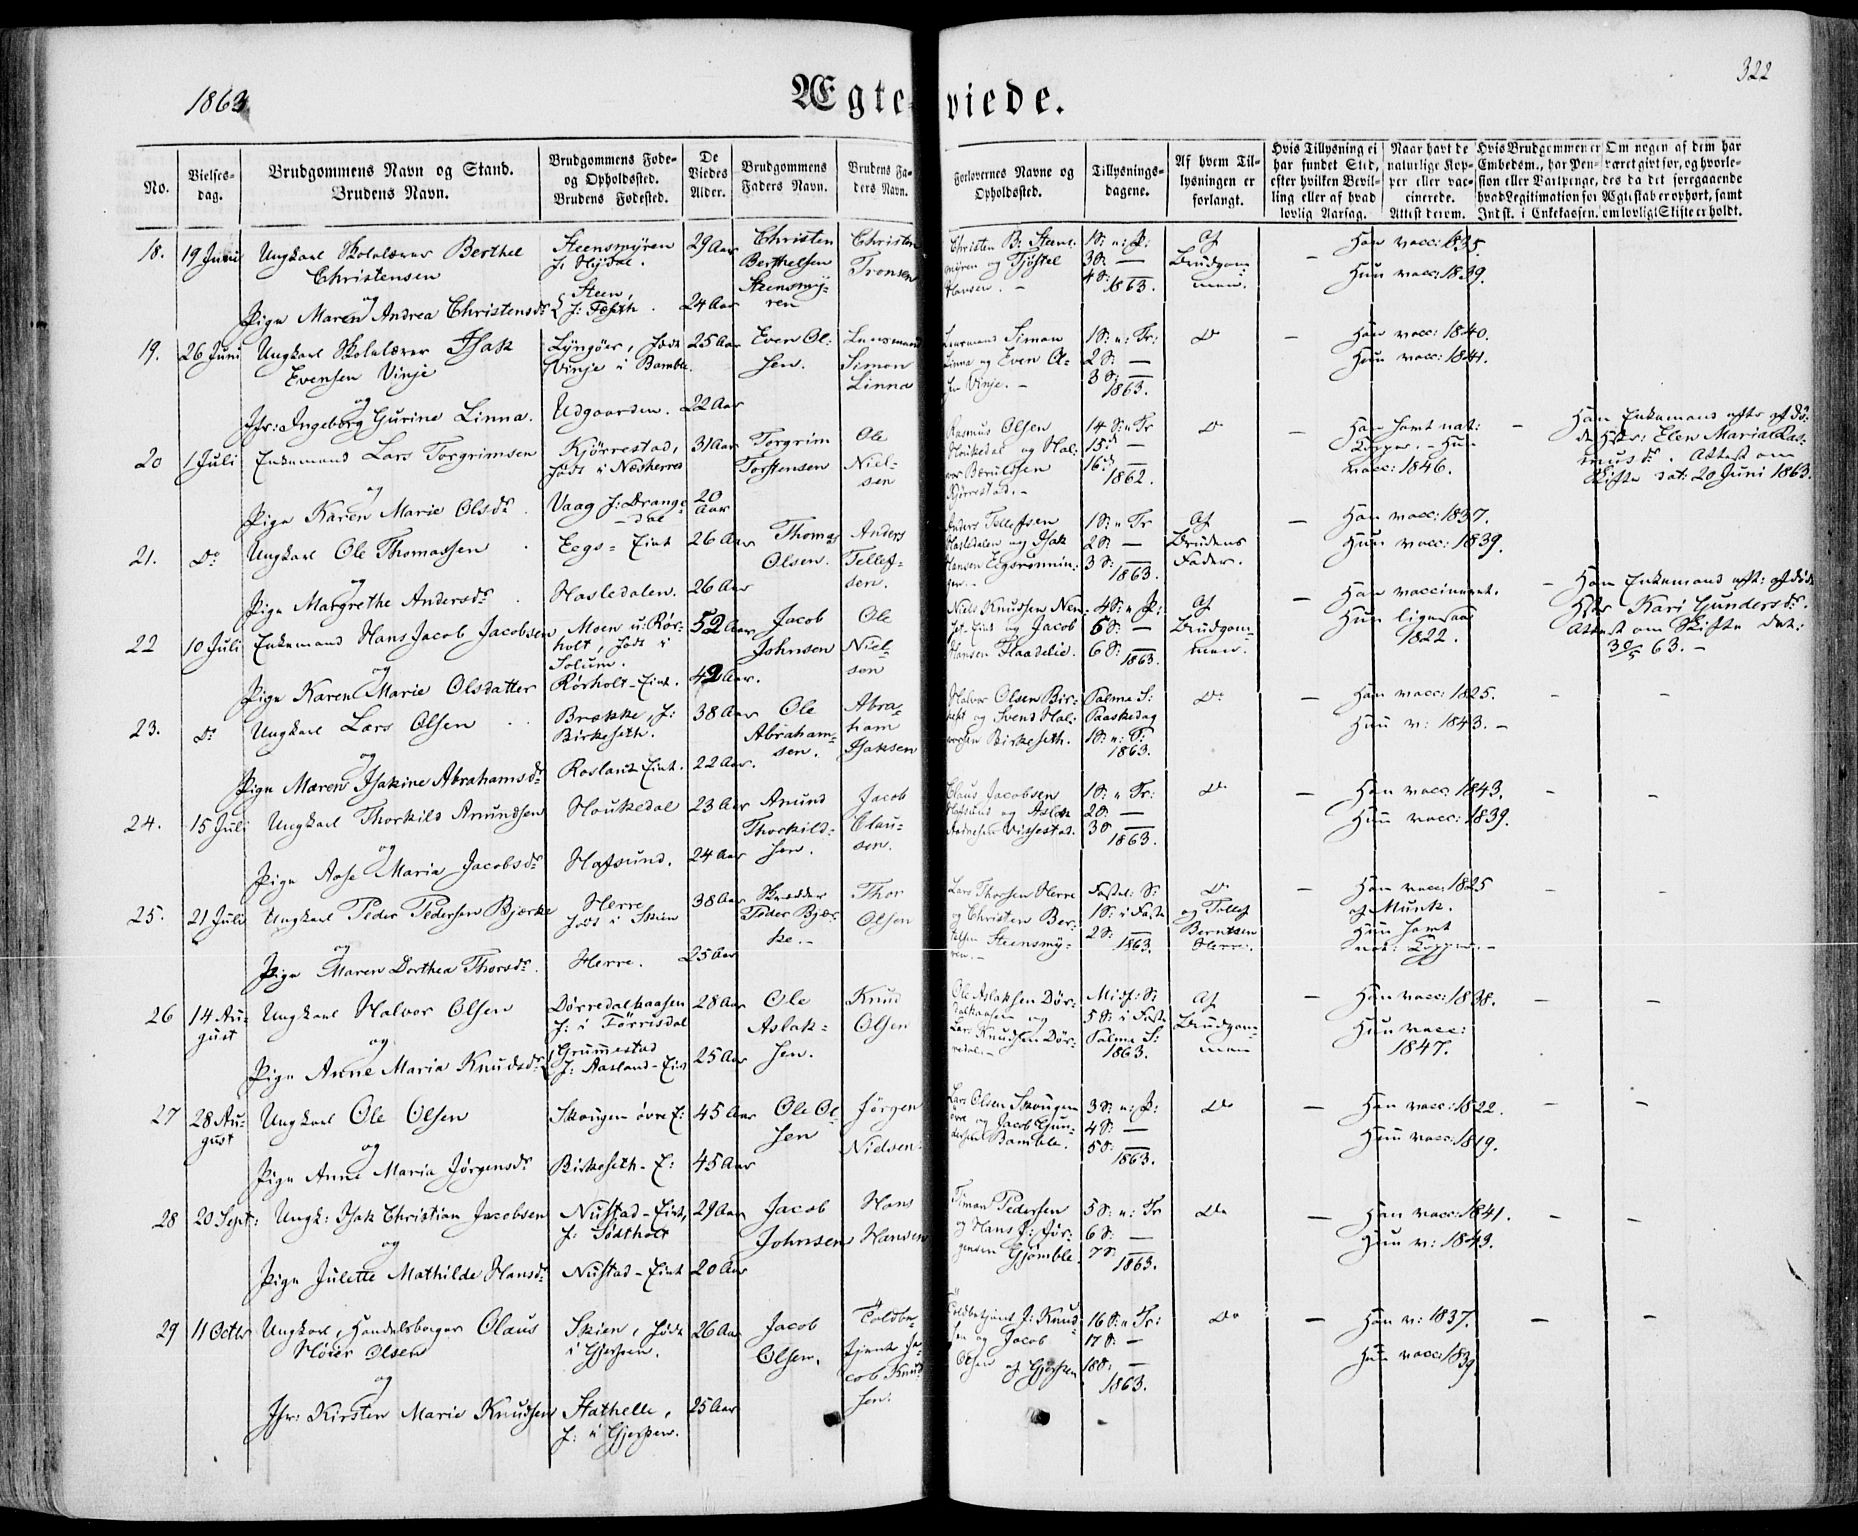 1863
Ægteviede.
322
No.
Vielses-
dag.
Brudgommens Navn og Stand.
Brudens Navn.
Brudgommens Føde-
og Opholdssted.
Brudens Fødested.
De
Viedes
Alder.
Brudgommens
Faders Navn.
Brudens Fa-
ders Navn.
Forlovernes Navne og
Opholdssted.
Tillysnings-
dagene.
Af hvem Til-
lysningen er
forlangt.
Hvis Tillysning ei
har fundet Sted,
efter hvilken Bevil-
ling eller af hvad
lovlig Aarsag.
Naar havt de
naturlige Kop-
per eller vac-
cinerede.
Attest derom.
Hvis Brudgommen er
Embedsm., har Pen-
sion eller Vartpenge,
hvad Legitimation for
Indst. i Enkekassen.
Om nogen af dem har
været gift før, og hvorle-
des da det foregaaende
Ægteskab er ophørt, samt
om lovligt Skifte er holdt.
18. 19 Juni Ungkarl Skolelærer Berthel
Christensen
og
Pige Maren Andrea Christensdr
Steensmyren
f: Eidet.
Steen,
f: Føsth.
29 Aar
24 Aar
Christen
Berthelsen
Steensmy-
ren
Christen
Tronsen
Christen B: Steens-
myren og Tjøstel
Hansen. -
1 S: n: P:
3 S: —
4 S: —
1863.
Af
Brudgom-
men.
—
Han vacc: 1835.
Hun vacc: 1839.
19. 26 Juni Ungkarl Skolelærer Isak
Evensen Vinje
og
Jfr: Ingeborg Gurine Linna.
Lyngøer, født
Vinje i Bamble.
Udgaarden.
25 Aar
22 Aar
Even Ol-
sen.
Lensmand
Simon
Linna
Lensmand Simon
Linna og Even Ol-
sen Vinje. -
1 S: n: Tr:
2 S: —
3 S: —
1863.
Do
—
Han vacc: 1840.
Hun vacc: 1841.
20 1 Juli Enkemand Lars Torgrimsen
og
Pige Karen Marie Olsdr.
Kjørrestad,
født i Nedherred
Vaag f: Drange-
dal
31 Aar
20
Aar
Torgrim
Torstensen
Ole
Niel-
sen
Rasmus Olsen
Houkedal og Hal-
vor Bærulfsen
Kjørrestad. -
14 S: n Tr
15 d —
16 d —
1862.
Do
—
Han havt nat:
Kopper. - Hun
vacc: 1846.
—
Han Enkemand efter afdø-
de Hstr: Elen Maria Ras-
musdr. Attest om
Skifte dat: 20 Juni 1863.
21. Do Ungkarl Ole Thomassen
og
Pige Margrethe Andersdr.
Eegs-Eiet
Hasledalen.
26 Aar
26 Aar
Thomas
Olsen.
Anders
Tellef-
sen.
Anders Tellefsen
Hasledalen og Isak
Hansen Eegsrønnin-
gen. -
1 S: n Tr
2 S: —
3 S: —
1863.
Af
Brudens
Fader.
—
Han vacc: 1837.
Hun vacc: 1839.
22 10 Juli Enkemand Hans Jacob Jacobsen
og
Pige Karen Marie Olsdatter
Moen u: Rør-
holt, født i
Solum.
Rørholt-Eiet.
52 Aar
42 Aar.
Jacob
Johnsen
Ole
Niel-
sen
Niels Knudsen
og Jacob
Hansen
4 S: n P:
5 S: —
6 S: —
1863.
Af
Brudgom-
men.
—
Han vaccineret.
Hun ligesaa
1822.
—
Han Enkemand eft: afdøde
Hstr Kari Gundersdr.
Attest om Skifte dat:
30/5 63. -
23. Do Ungkarl Lars Olsen
og
Pige Maren Isakine Abrahamsdr
Brække, f:
Birkeseth.
Rosland-Eiet.
38 Aar
22 Aar.
Ole
Abraham-
sen.
Abra-
ham
Isaksen
Halvor Olsen Bir-
keset og Svend Hal-
vorsen Birkeseth.
Palme S:
Paaskedag
1 S: n: S:
1863.
Do
—
Han vacc: 1825.
Hun v: 1843. -
24. 15 Juli Ungkarl Thorkild Anundsen
og
Pige Aase Maria Jacobsdr
Houkedal
Hafsund.
23 Aar
24 Aar
Anund
Thorkild-
sen.
Jacob
Clau-
sen.
Claus Jacobsen
Hafsund og Aslak
Andresen Vissestad.
1 S: n Tr:
2 S: —
3 S: —
1863.
Do
—
Han vacc: 1843.
Hun vacc: 1839.
25. 21 Juli Ungkarl Peder Pedersen Bjerke
og
Pige Maren Dorthea Thorsdr.
Herre
født i Skien
Herre.
38 Aar
25 Aar
Skrædder
Peder Bjer-
ke. -
Thor
Olsen
Lars Thorsen Herre
og Christen Ber-
telsen Steensmy-
ren. -
Fastel: S:
1 S: i Faste
2 S: —
1863.
Do
og Tellef
Berntsen
Herre.
—
Han vacc: 1825
af Munk.
Hun havt
nat: Kopper. -
26 14 Au-
gust
Ungkarl Halvor Olsen
og
Pige Anne Maria Knudsdr
Dørredalkaasen
f: i Tørrisdal
Grummestad
f: Aasland-Eiet
28 Aar
25 Aar
Ole
Aslak-
sen.
Knud
Olsen
Ole Aslaksen Dør-
dalkaasen og
Lars Knudsen Dør-
redal. -
Midf: S:
5 S: i Faste
Palme S:
1863.
Af
Brudgom-
men
—
Han vacc: 1838.
Hun vacc:
1847.
27 28 Au-
gust
Ungkarl Ole Olsen
og
Pige Anne Maria Jørgensdr
Skougen øvre E:
Birkeseth-E:
45 Aar
45 Aar
Ole Ol-
sen
Jørgen
Nielsen.
Lars Olsen Skougen
øvre og Jacob Gun-
dersen Bamble.
3 S: n: P:
4 S: —
5 S: —
1863.
Do
—
Han vacc: 1822.
Hun vacc: 1819.
28 20 Sept: Ungk: Isak Christian Jacobsen
og
Pige Julette Mathilde Hansdr
Nustad-Eiet,
f: Tødtholt
Nustad-Eiet
29 Aar
20 Aar
Jacob
Johnsen
Hans
Hansen
Simon Pedersen
og Hans J: Jør-
gensen Gjømble.
5 S: n: Tr
6 S: —
7 S: —
1863.
Do
—
Han vacc: 1841.
Hun v: 1843.
29 11 Octbr Ungkarl, Handelsborger Olaus
Høier Olsen
og
Jfr: Kirsten Marie Knudsen
Skien, født
i Gjerpen.
Stathelle,
f: i Gjerpen.
26 Aar
25 Aar
Jacob
Olsen.
Toldbe-
tjent Ja-
cob Knud-
sen.
Toldbetjent J: Knud-
sen og Jacob
Olsen af Gjerpen
16 S: n Tr:
17 S: —
18 S: —
1863.
Do
—
Han v: 1837.
Hun vacc: 1839